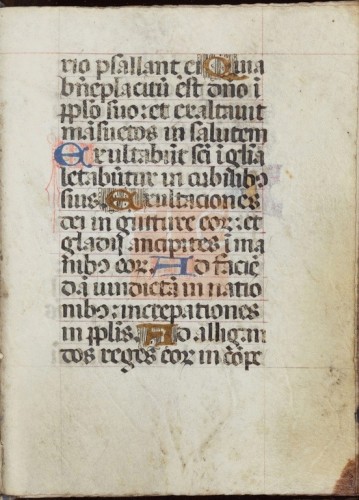 rio psallant ei Quia
bñeplacitũ est dño ĩ
pplo suo: et exaltavit
mãsuetos in salutem
Exultabũt sci ĩ glia
letabũtur in cubilibꝫ
suis Exultaciones
dei in gutture eor: et
gladii ancipites ĩ ma
nibꝫ eor Ad faciẽ
dã uindictã in natio
nibꝫ: increpationes
in pplis. Ad alligan
dos reges eor in cõpe